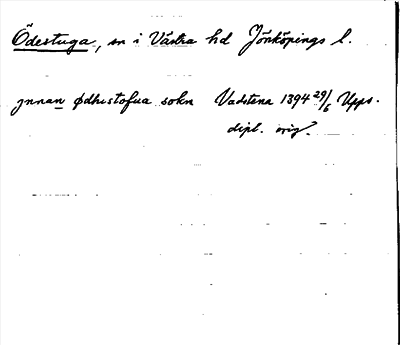 Ödestuga, sn i Västra hd Jönköpings l.
jnnan ødhustofua sokn Vadstena 1394 29/6 Upps.
dipl. orig.